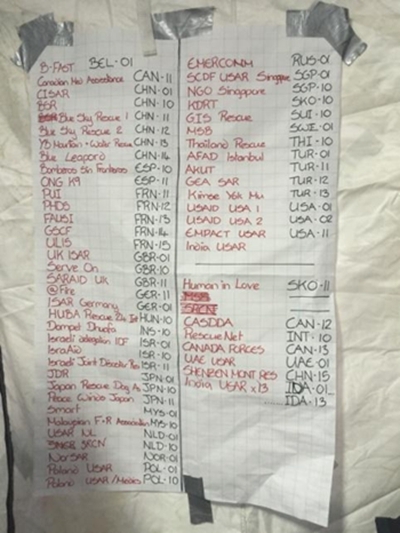 B-FAST BEL-01
Canadian Med Assistance CAN-11
CISAR CHN-01
BSR CHN-10
Blue Sky Rescue 1 CHN-11
Blue Sky Rescue 2 CHN-12
YB Mountain + Water Rescue CHN-13
Blue Leopard CHN-14
Bomberos Sin Fronteras ESP-10
ONG K9 ESP-11
PUI FRN-11
PHDS FRN-12
FAUSI FRN-13
GSCF FRN-14
ULIS FRN-15
UK ISAR GBR-01
Serve On GBR-10
SARAID UK GBR-11
@Fire GER-11
ISAR Germany GER-01
HUBA Rescue HUN-10
Dompet Dhuafa INS-10
Israeli delegation IDF ISR-01
IsraAid ISR-10
Israeli Joint Disaster Res ISR-11
JDR JPN-01
Japan Rescue Dog As JPN-10
Peace Winds Japan JPN-11
Smart MYS-01
Malaysian F+R Association MYS-10
USAR NL NLD-01
SRCN NLD-10
NorSAR NOR-01
Poland USAR POL-01
Poland USAR/Medics POL-10
EMERCOM RUS-01
SCDF USAR Singapore SGP-01
NGO Singapore SGP-10
KDRT SKO-10
GIS Rescue SUI-10
MSB SWE-01
Thailand Rescue THI-10
AFAD Istanbul TUR-01
AKUT TUR-11
GEA SAR TUR-12
Kimse Yok Mu TUR-13
USAID USA 1 USA-01
USAID USA 2 USA-02
EMPACT USAR USA-11
India USAR
Human in Love SKO-11
MSB
SRCN
CASDDA CAN-12
Rescue Net INT-10
CANADA FORCES CAN-13
UAE USAR UAE-01
SHENZEN MONT RES CHN-15
India USAR x13 IDA-01
IDA-13